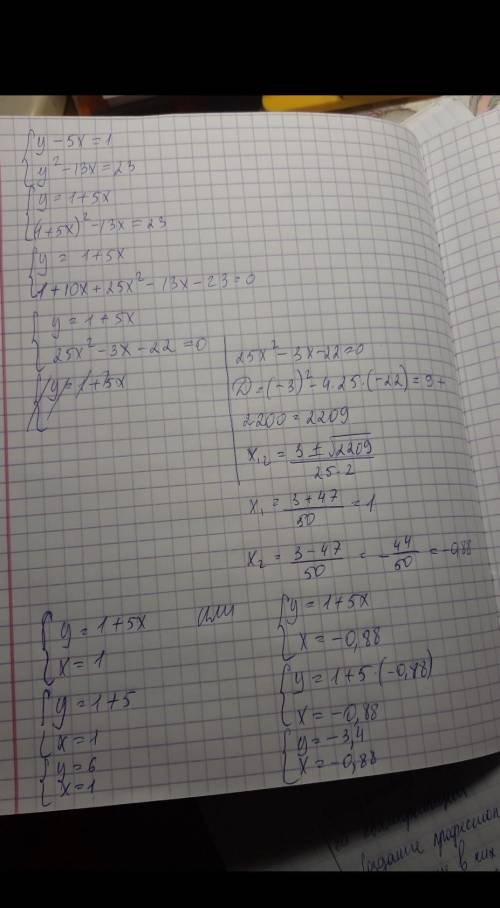 { y - 5x = 1
y² - 13x = 23
{ y = 1 + 5x
(1+5x)² - 13x = 23
{ y = 1 + 5x
1 + 10x + 25x² - 13x - 23 = 0
{ y = 1 + 5x
25x² - 3x - 22 = 0
25x² - 3x - 22 = 0
D = (-3)² - 4·25·(-22) = 9 +
2200 = 2209
x₁,₂ = (3 ± √2209) / (25·2)
x₁ = (3 + 47) / 50 = 1
x₂ = (3 - 47) / 50 = -44/50 = -0,88
{ y = 1 + 5x
x = 1
{ y = 1 + 5
x = 1
{ y = 6
x = 1
или
{ y = 1 + 5x
x = -0,88
{ y = 1 + 5·(-0,88)
x = -0,88
{ y = -3,4
x = -0,88